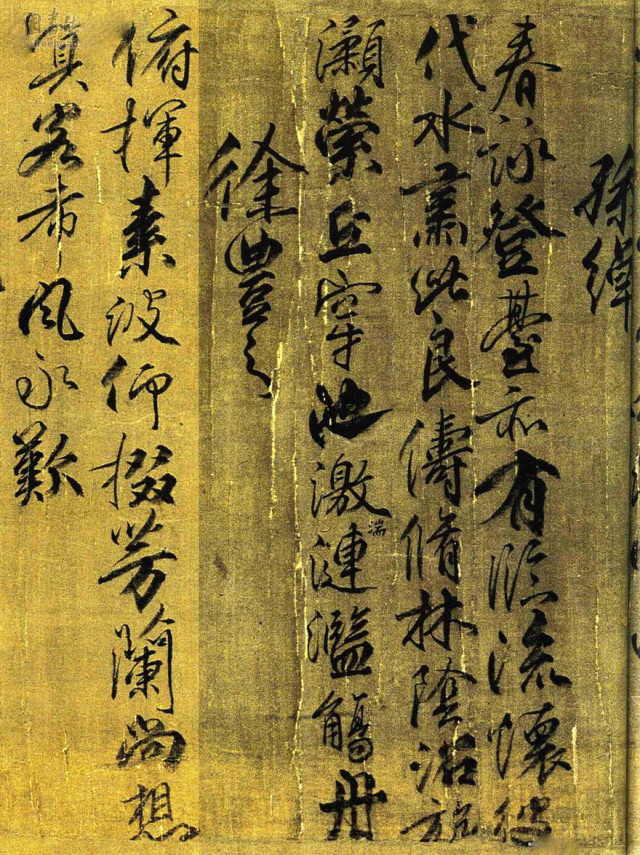 孫綽
春詠登臺亦有臨流懷彼
代水肅此良儔脩林陰沼旋
瀨縈丘穿池激湍漣濫觴舟
徐豐之
俯揮素波仰掇芳蘭尚想
真客希風永歎